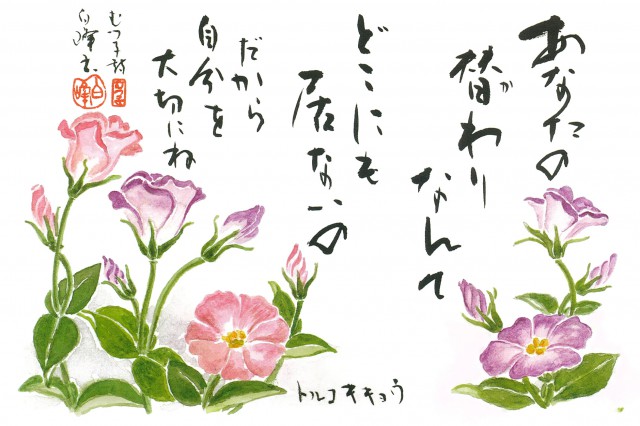 あなたの
替わり
が
なんて
どこにも
居ないの
だから
自分を
大切にね
むつ子詩
白峰書
白峰
トルコキキョウ